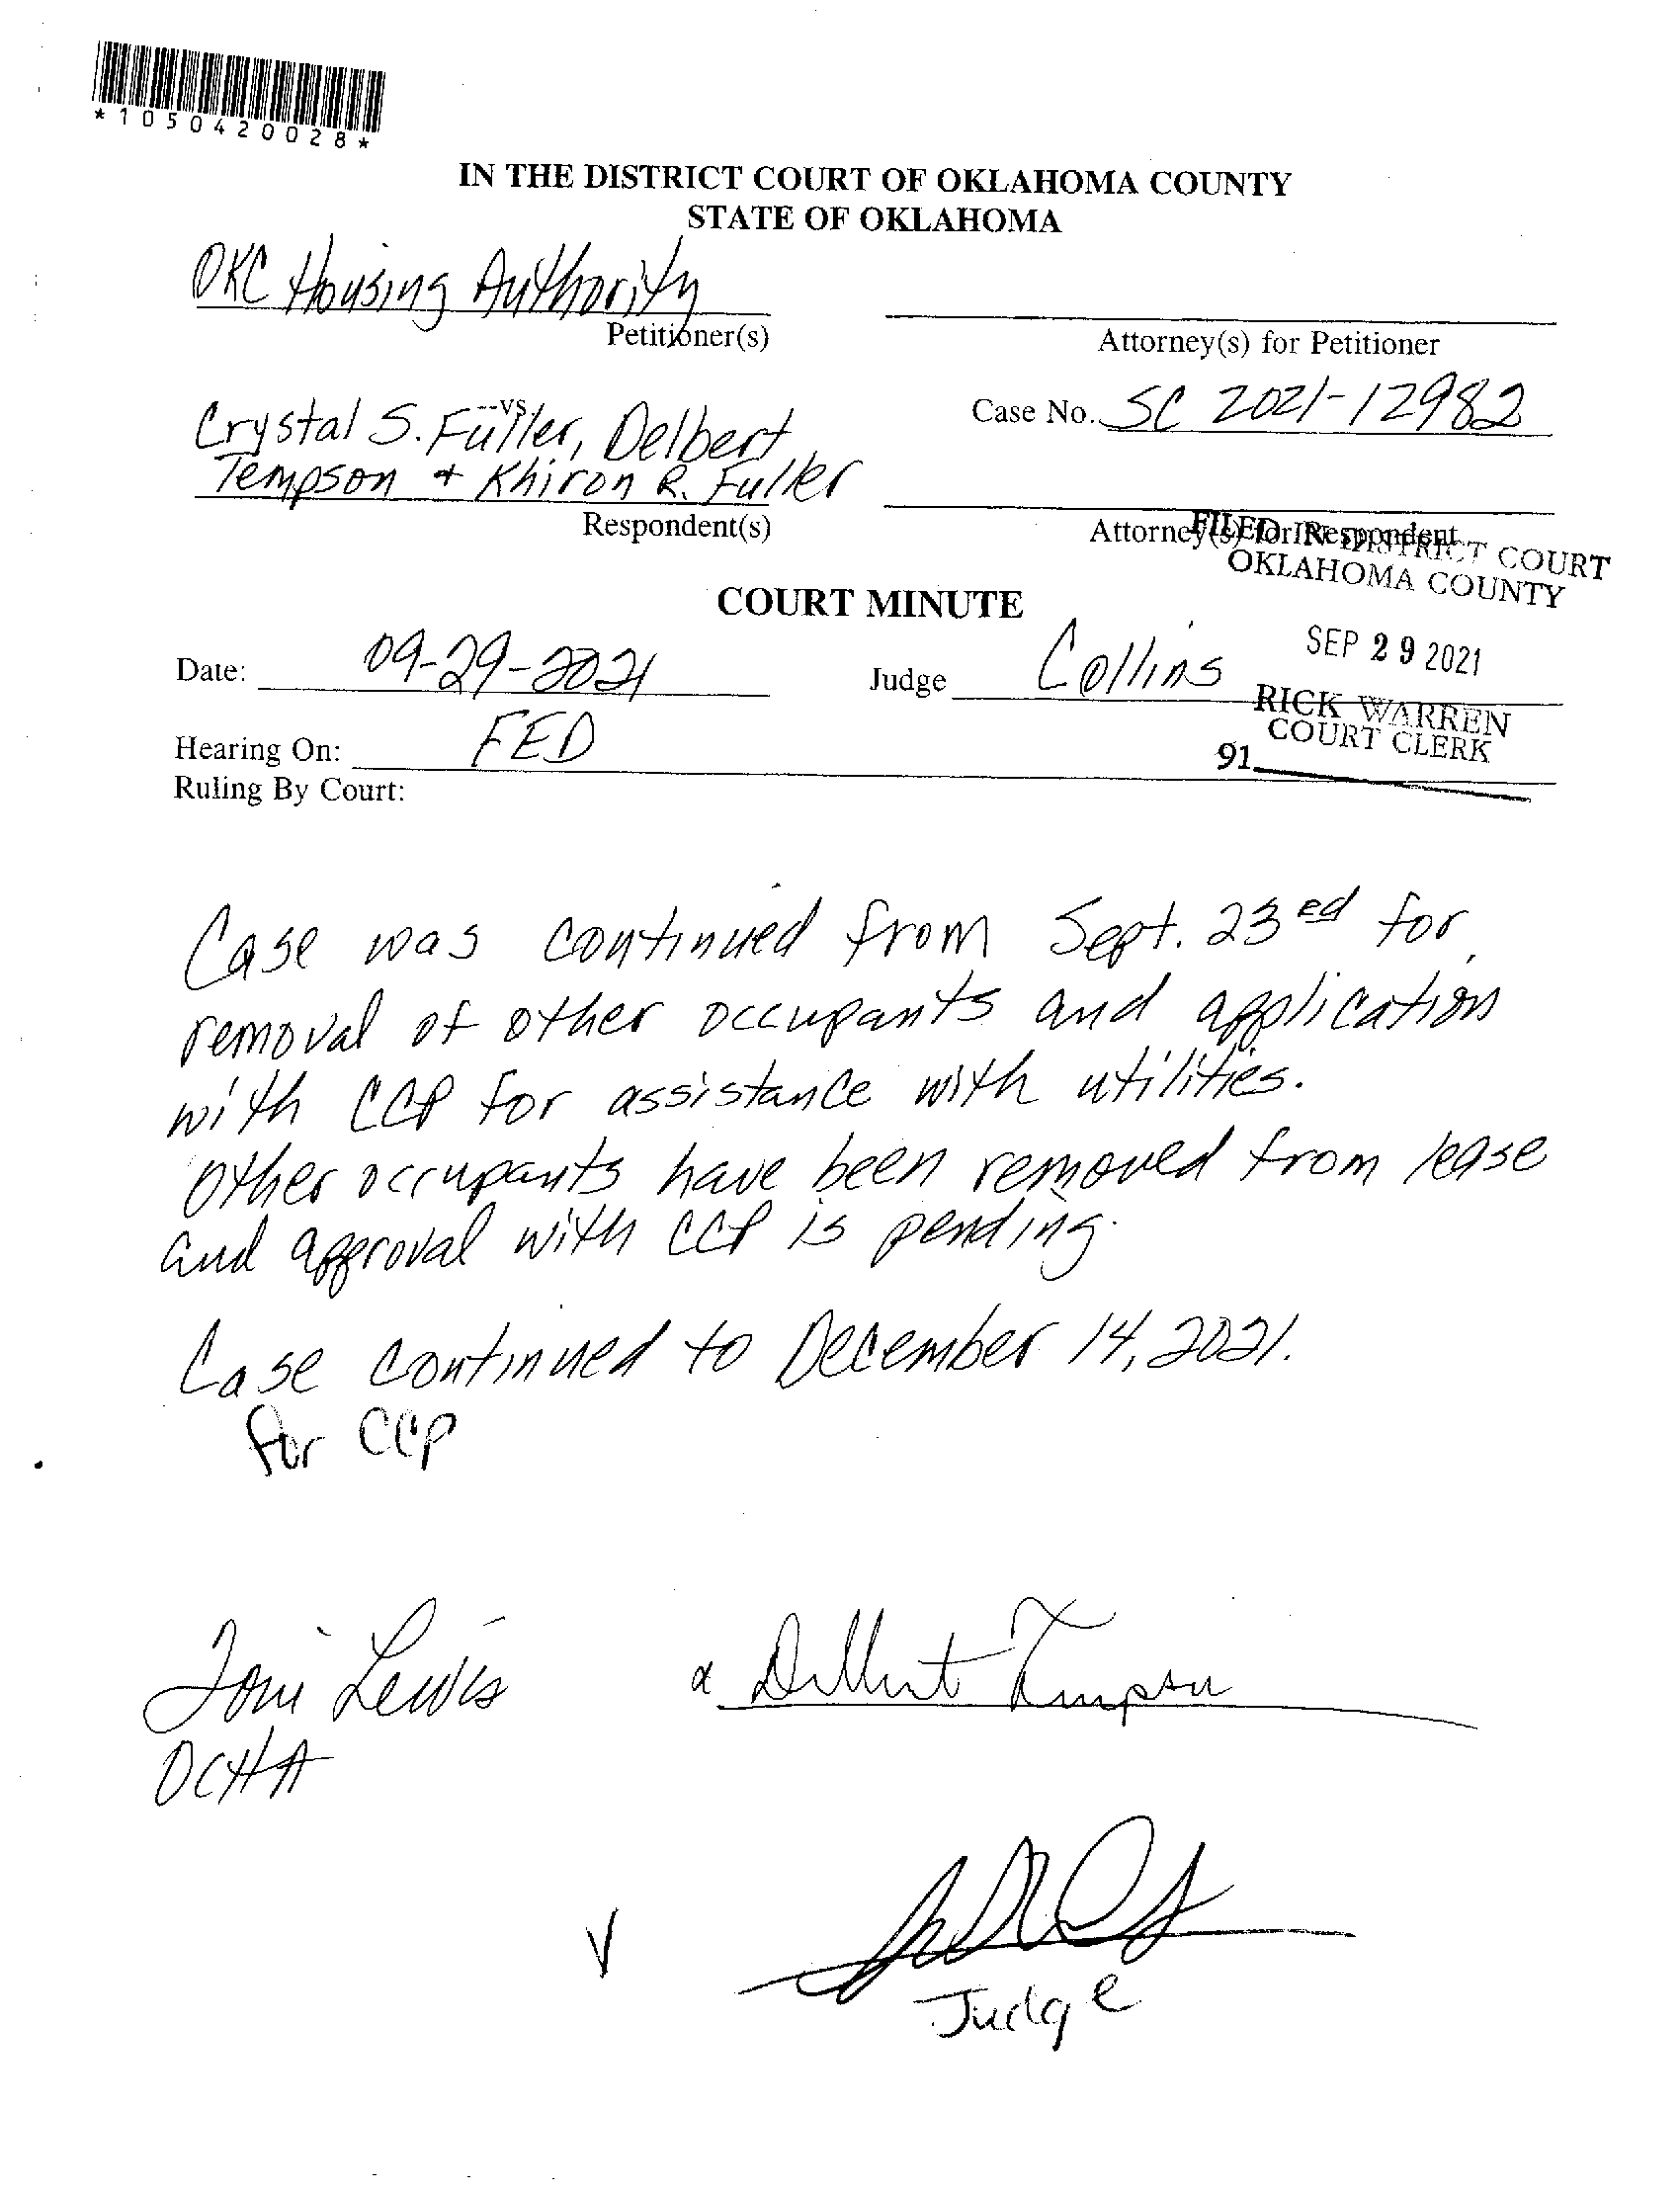 *1050420028*
IN THE DISTRICT COURT OF OKLAHOMA COUNTY
STATE OF OKLAHOMA
OKC Housing Authority
Petitioner(s)
Attorney(s) for Petitioner
--vs.
Case No. SC 2021-12982
Crystal S. Fuller, Delbert
Tempson + Khiron R. Fuller
Respondent(s)
Attorney(s) for Respondent
FILED IN DISTRICT COURT
OKLAHOMA COUNTY
COURT MINUTE
SEP 29 2021
Date: 09-29-2021
Judge Collins
RICK WARREN
COURT CLERK
91
Hearing On: FED
Ruling By Court:
Case was continued from Sept. 23ed for
removal of other occupants and application
with CCP for assistance with utilities.
Other occupants have been removed from lease
and approval with CCP is pending.
Case continued to December 14, 2021.
for CCP
Toni Lewis
OCHA
x Delbert Tempson
Judge